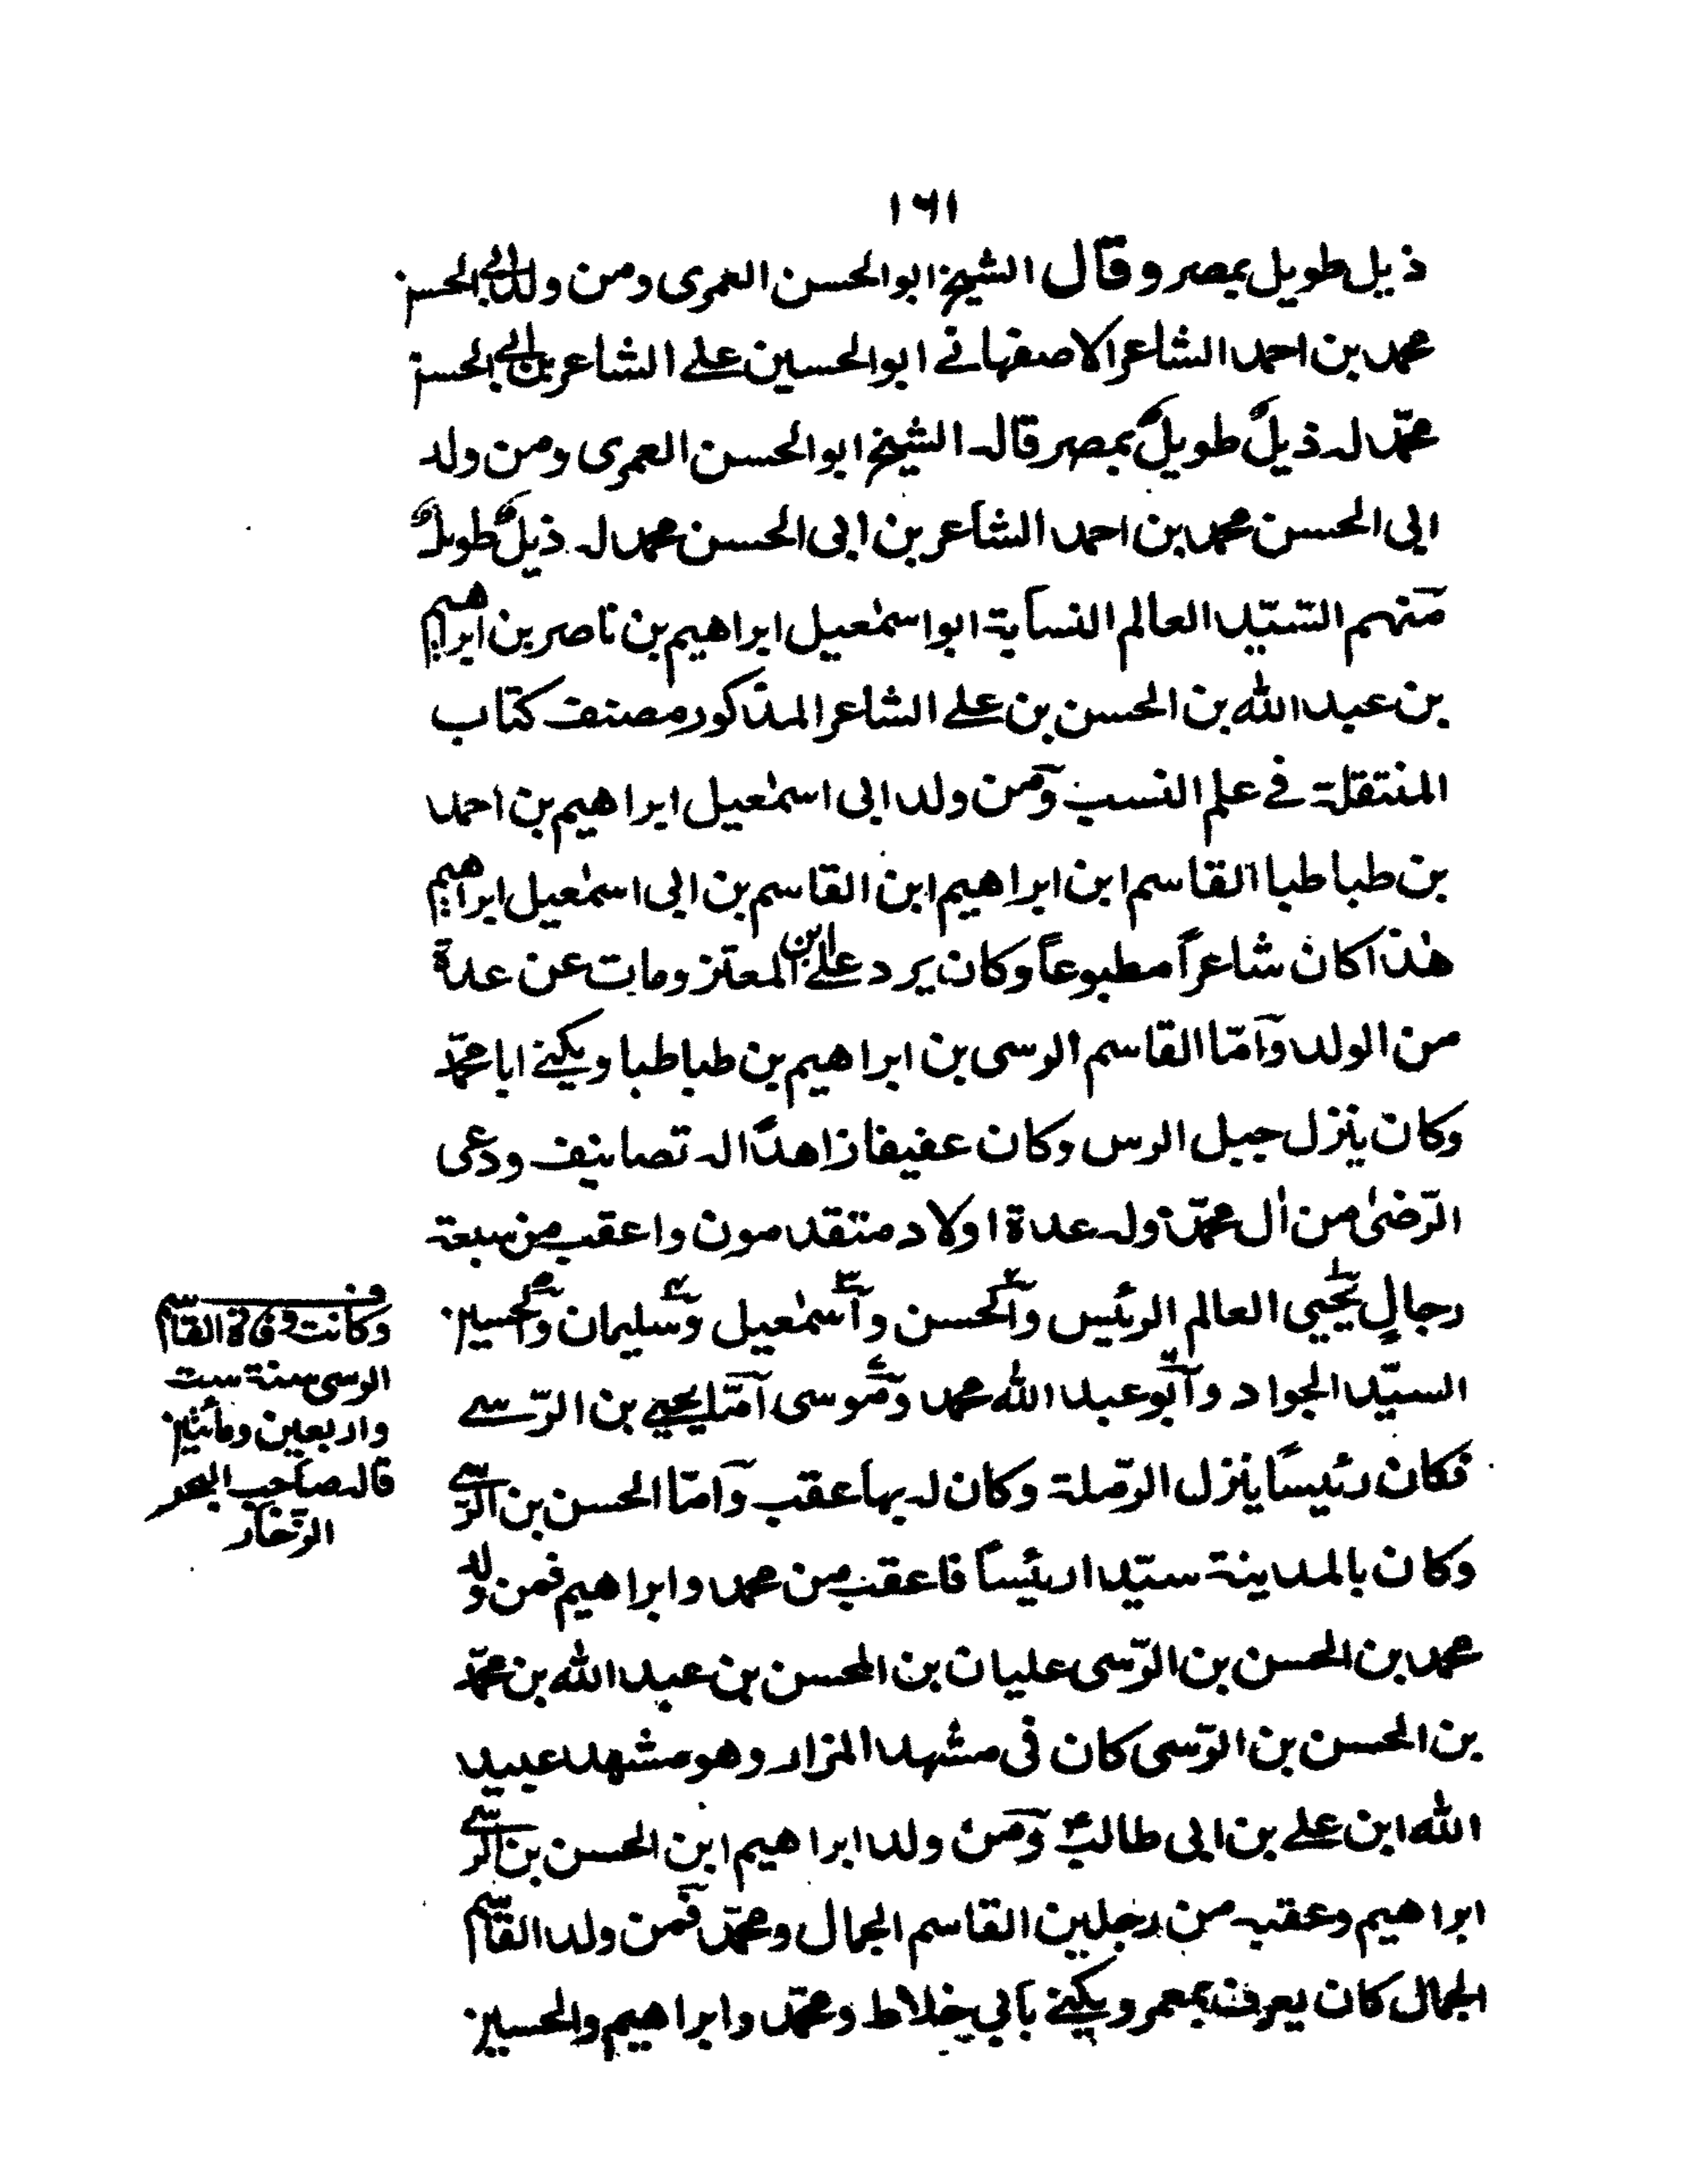 ١٦١
ذيل طويل بمصر وقال الشيخ ابو الحسن العمرى ومن ولد ابى الحسن
محمد بن احمد الشاعر الاصفهانے ابو الحسين علے الشاعر بن ابى الحسن
محمّد له ذيلٌ طويلٌ بمصر قاله الشيخ ابو الحسن العمرى ومن ولد
ابى الحسن محمد بن احمد الشاعر بن ابى الحسن محمد له ذيلٌ طويلٌ
منهم السّيّد العالم النسابة ابو اسمٰعيل ابراهيم بن ناصر بن ابراهيم
بن عبد الله بن الحسن بن علے الشاعر المذكور مصنف كتاب
المنتقلة فے علم النسب ومن ولد ابى اسمٰعيل ابراهيم بن احمد
بن طباطبا القاسم ابن ابراهيم ابن القاسم بن ابى اسمٰعيل ابراهيم
هٰذا كان شاعراً مطبوعاً وكان يرد علے ابن المعتز ومات عن عدة
من الولد وامّا القاسم الرسى بن ابراهيم بن طباطبا ويكنے ابا محمّد
وكان ينزل جبل الرس وكان عفيفا زاهدًا له تصانيف ودعى
الرّضىٰ من اٰل محمّد وله عدة اولاد متقدمون واعقب من سبعة
رجالٍ يحيى العالم الرئيس والحسن واسمٰعيل وسليمان والحسين
السيّد الجواد وابو عبد الله محمد وموسى امّا يحيے بن الرّسے
فكان رئيسًا ينزل الرّملة وكان له بها عقب وامّا الحسن بن الرّسے
وكان بالمدينة سيّدا رئيساً فاعقب من محمد وابراهيم فمن ولد
محمد بن الحسن بن الرّسى عليان بن المحسن بن عبد الله بن محمّد
بن الحسن بن الرّسى كان فى مشهد المزار وهو مشهد عبيد
الله ابن علے بن ابى طالبؑ ومن ولد ابراهيم ابن الحسن بن الرسّے
ابراهيم وعقبه من رجلين القاسم الجمال ومحمّد فمن ولد القاسم
الجمال كان يعرف بمعمر ويكنے بابي خلاط ومحمّد وابراهيم والحسين
وكانت وفاة القاسم
الرسى سنة ست
واربعين ومأتين
قاله صاحب البحر
الزخّار